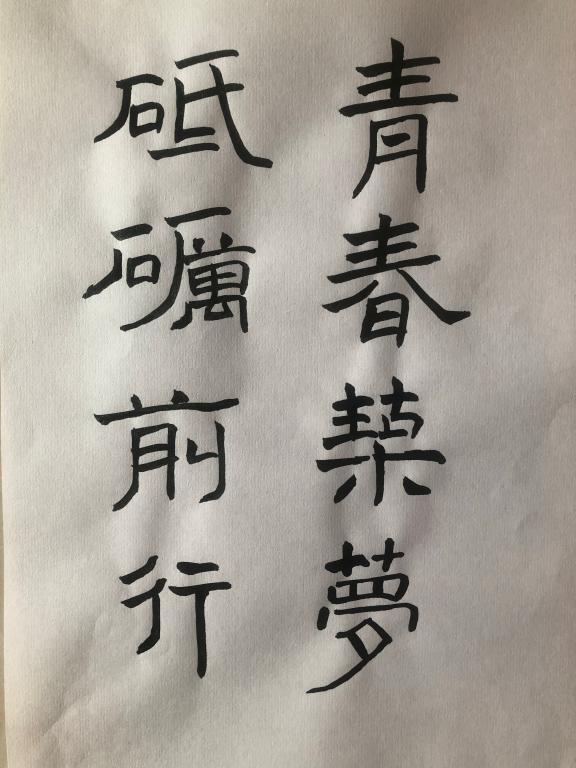 青春築夢
砥礪前行